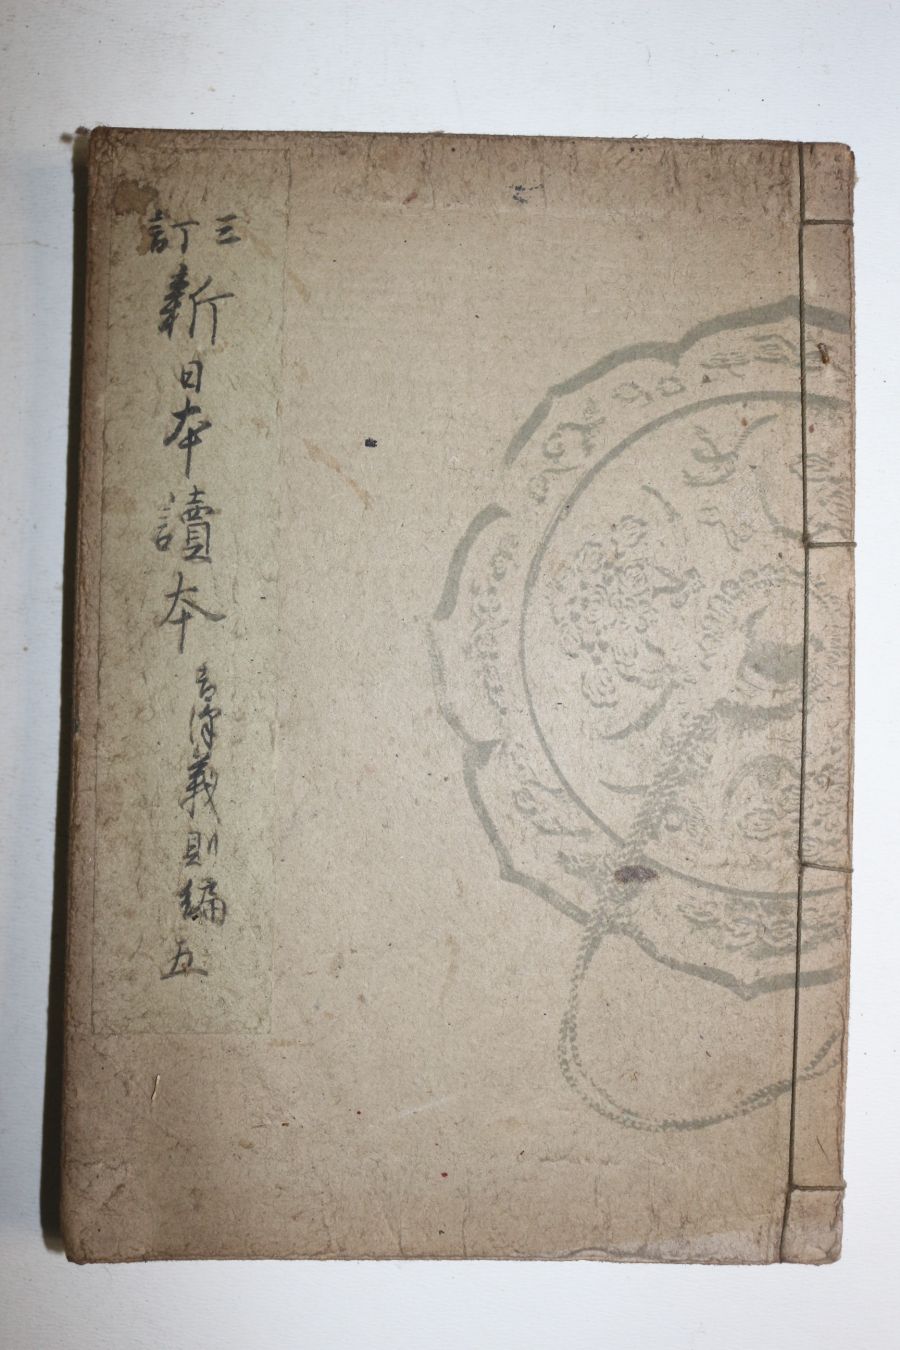 三訂
新日本讀本 吉澤義則編 五